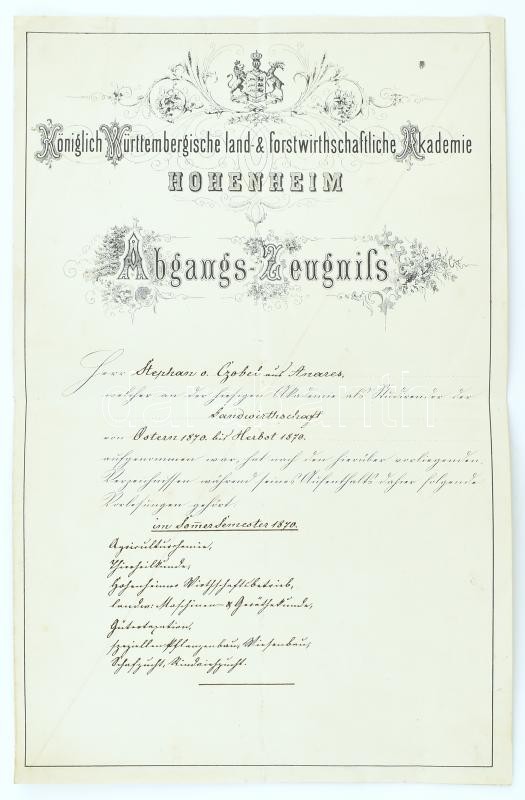 Königlich Württembergische land- & forstwirthschaftliche Akademie
HOHENHEIM
Abgangs-Zeugniſs
Herr Stephan v. Czobel aus Anares,
welcher an der hiesigen Akademie als Studirender der
Landwirthschaft
von Ostern 1870. bis Herbst 1870.
aufgenommen war, hat nach den hierüber vorliegenden
Verzeichnissen während seines Aufenthalts daher folgende
Vorlesungen gehört:
im Som̄er Semester 1870.
Agriculturchemie,
Thierheilkunde,
Hohenheimer Wirthschaftsbetrieb,
landw: Maschinen- & Geräthekunde,
Gütertaxation,
speziellen Pflanzenbau, Wiesenbau,
Schafzucht, Rindviehzucht.